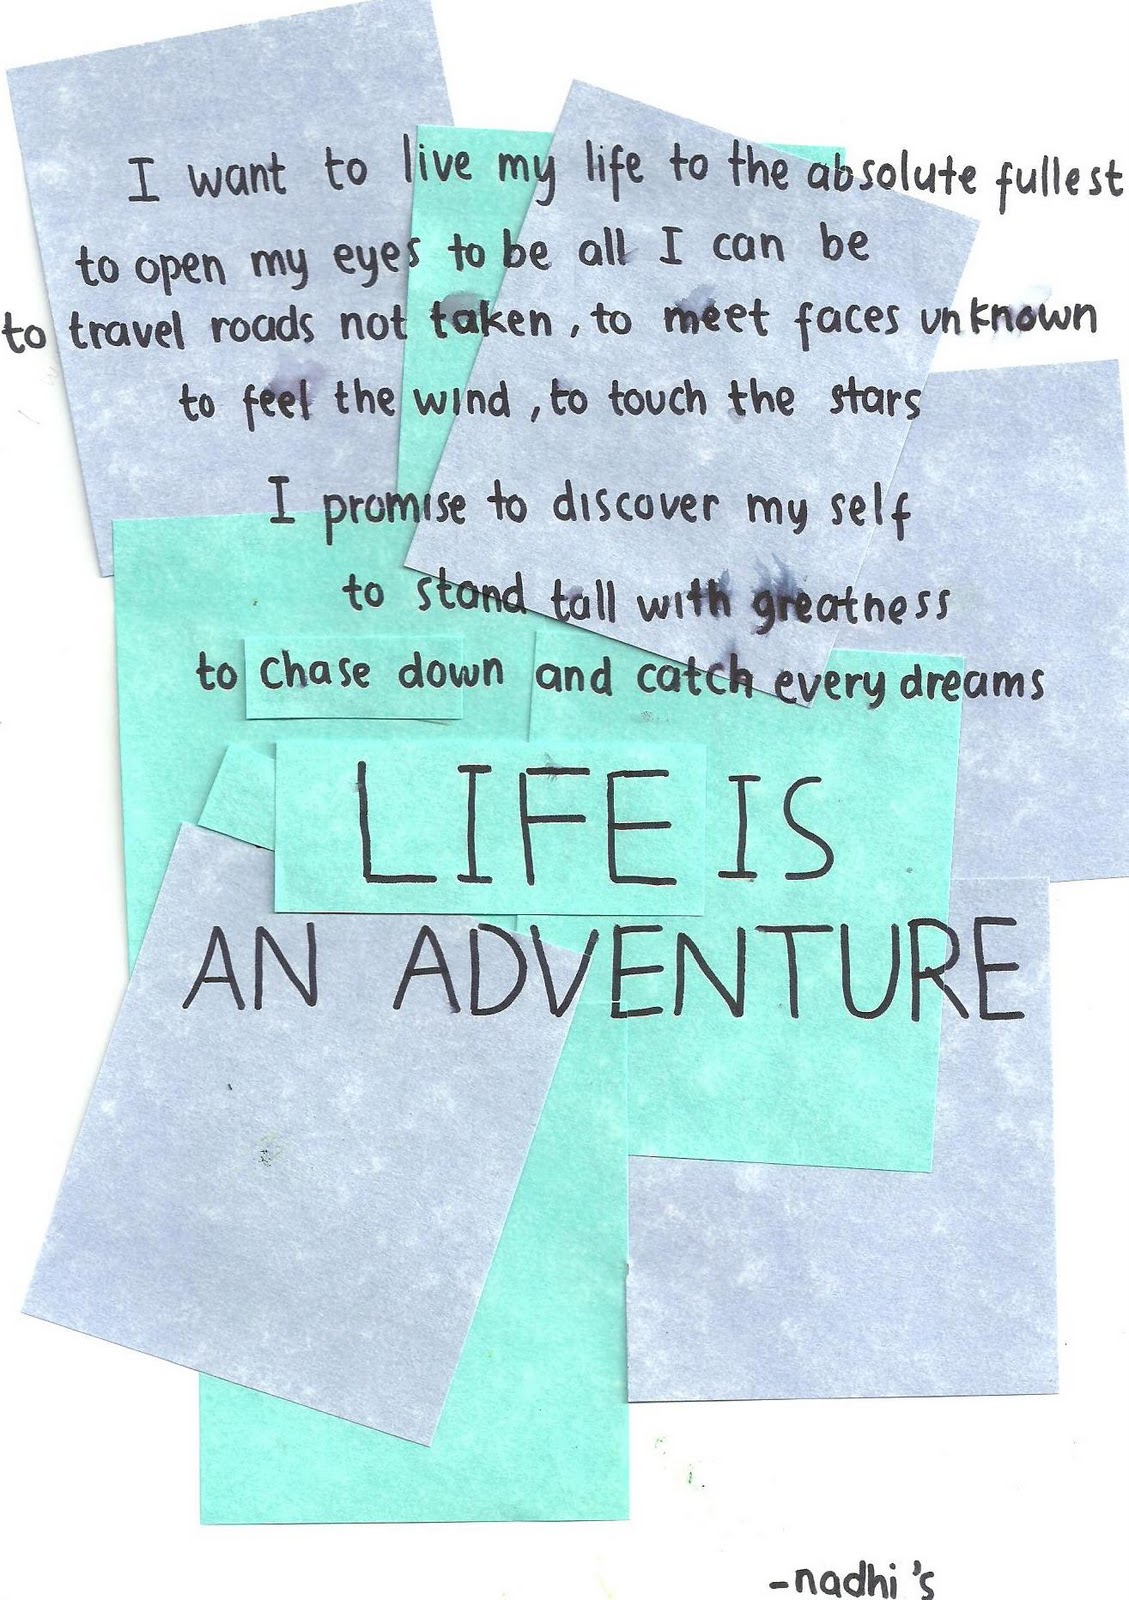 I want to live my life to the absolute fullest
to open my eyes to be all I can be
to travel roads not taken, to meet faces unknown
to feel the wind, to touch the stars
I promise to discover my self
to stand tall with greatness
to chase down and catch every dreams
LIFE IS
AN ADVENTURE
-nadhi's